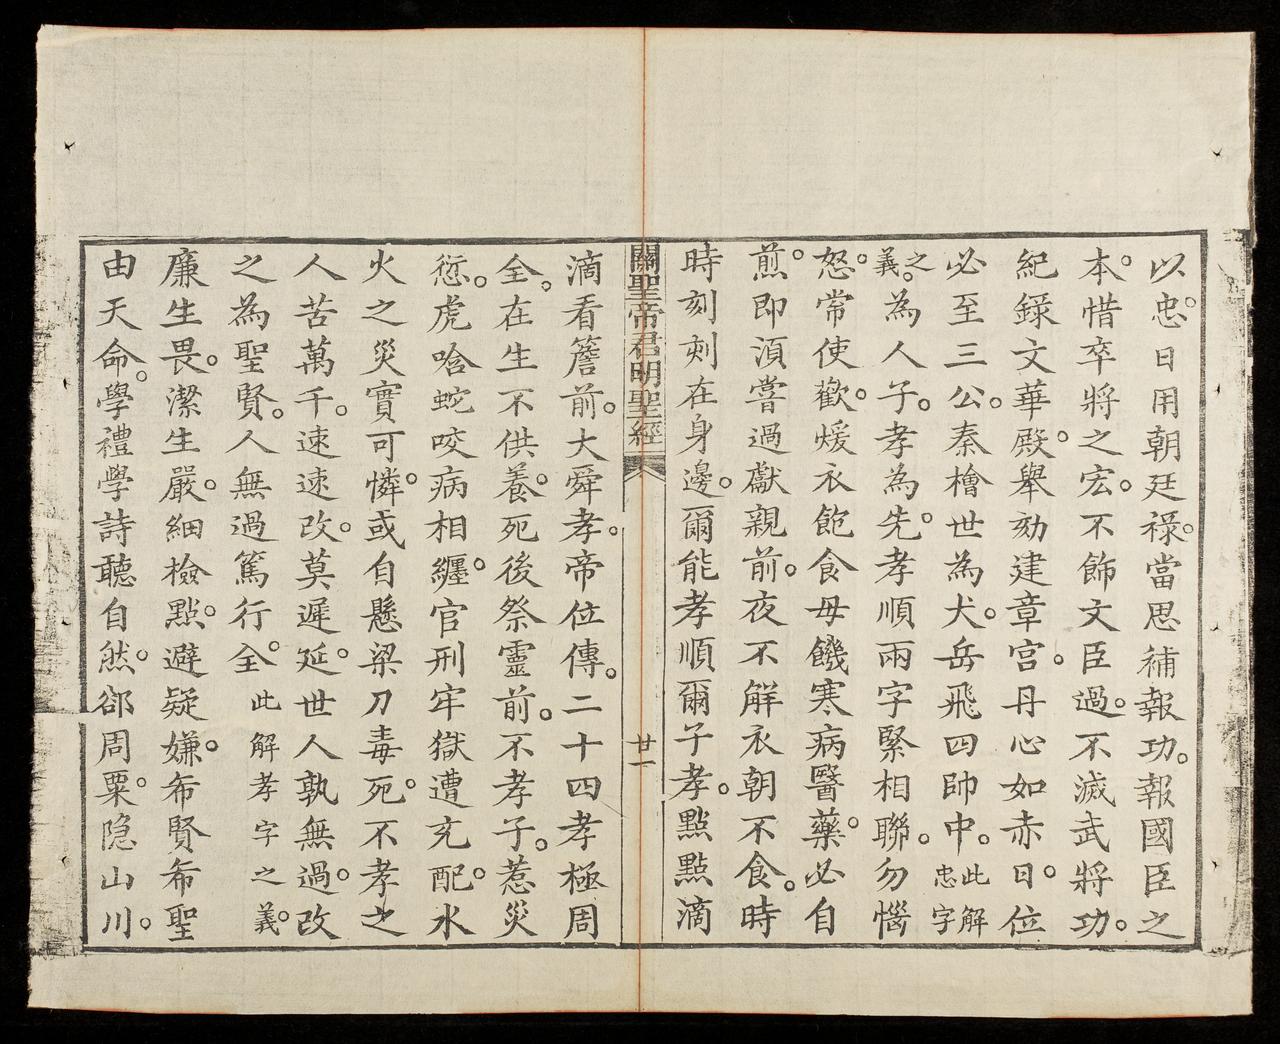 以忠。日用朝廷祿。當思補報功。報國臣之
本。惜卒將之宏。不飾文臣過。不滅武將功。
紀錄文華殿。舉劾建章宫。丹心如赤日。位
必至三公。秦檜世為犬。岳飛四帥中。此解忠字
之義。為人子。孝為先。孝順兩字緊相聯。勿惱
怒。常使歡。煖衣飽食毋饑寒病醫藥。必自
煎。即須嘗過獻親前。夜不解衣朝不食。時
時刻刻在身邊。爾能孝順爾子孝。點點滴
關聖帝君明聖經
廿一
滴看簷前。大舜孝。帝位傳。二十四孝極周
全。在生不供養。死後祭靈前。不孝子。惹災
愆。虎唅蛇咬病相纏。官刑牢獄遭充配。水
火之災實可憐。或自懸梁刀毒死。不孝之
人苦萬千。速速改。莫遲延。世人孰無過。改
之為聖賢。人無過篤行全。此解孝字之義。
廉生畏。潔生嚴。細檢點。避疑嫌。布賢布聖
由天命。學禮學詩聽自然。郤周粟。隐山川。